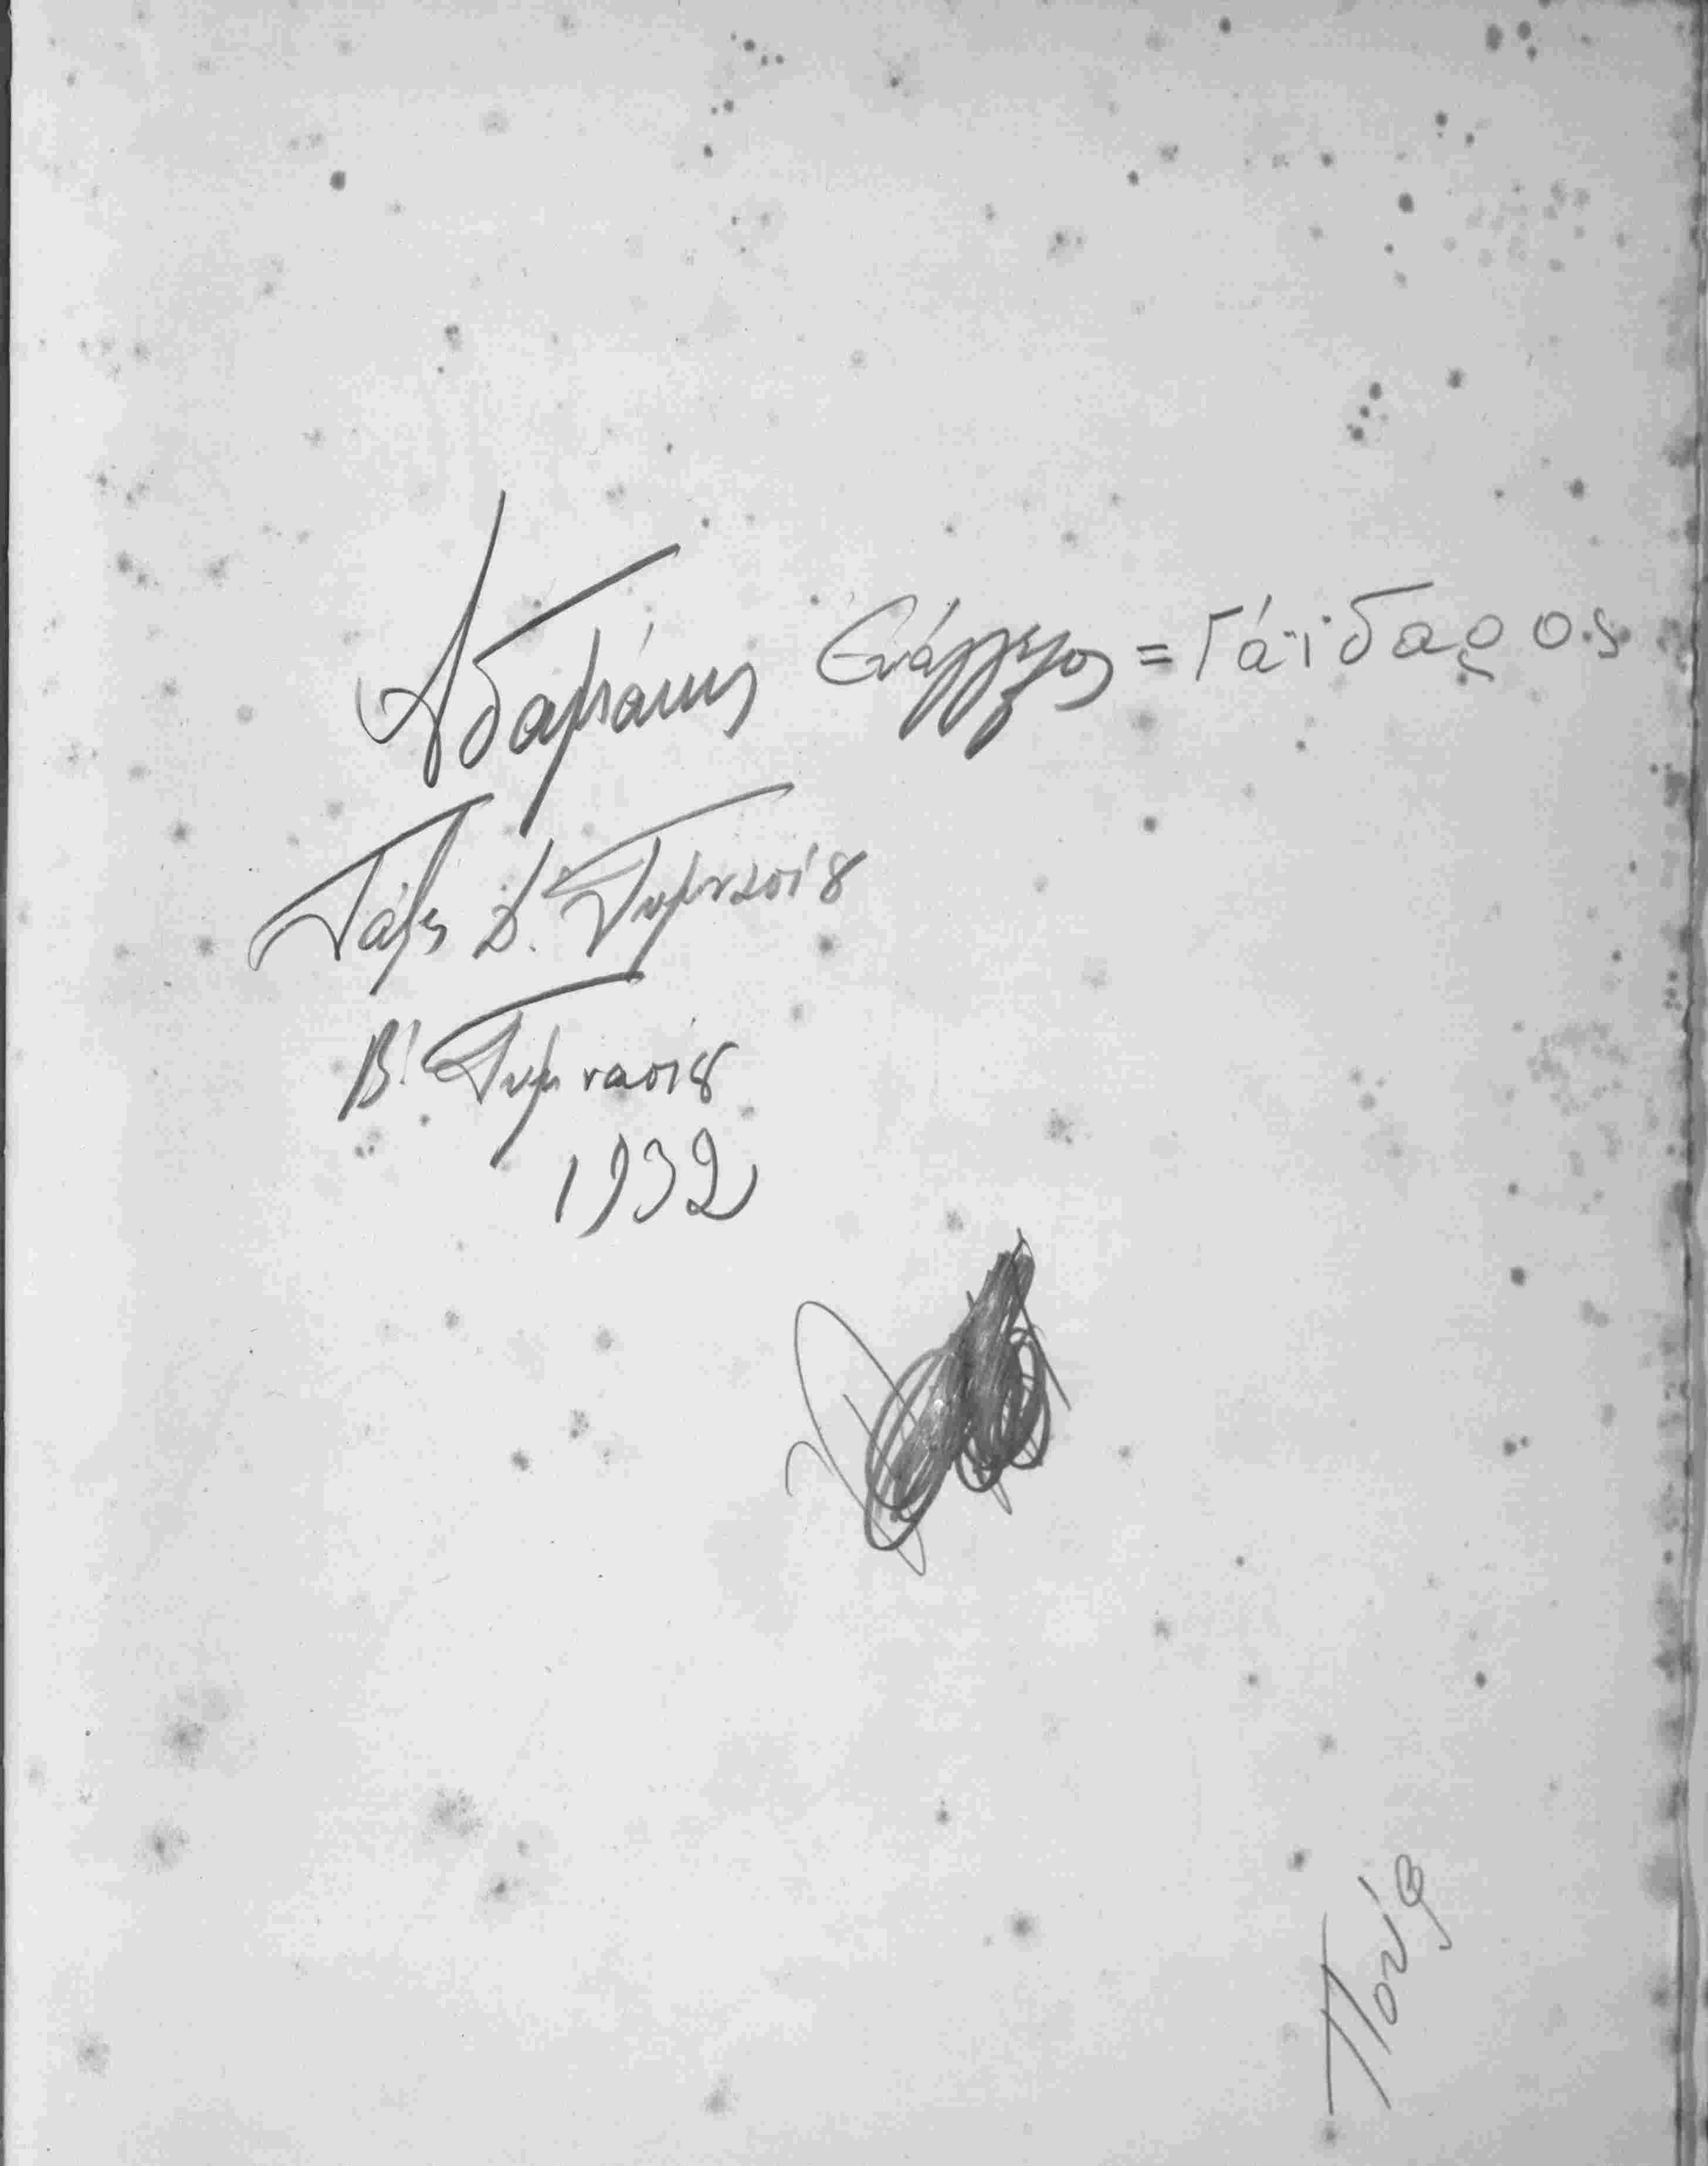 Αδαμάκης Ευάγγελος = Γάϊδαρος
Τάξις Δ. Γυμνασίου
Β! Γυμνασίου
1932